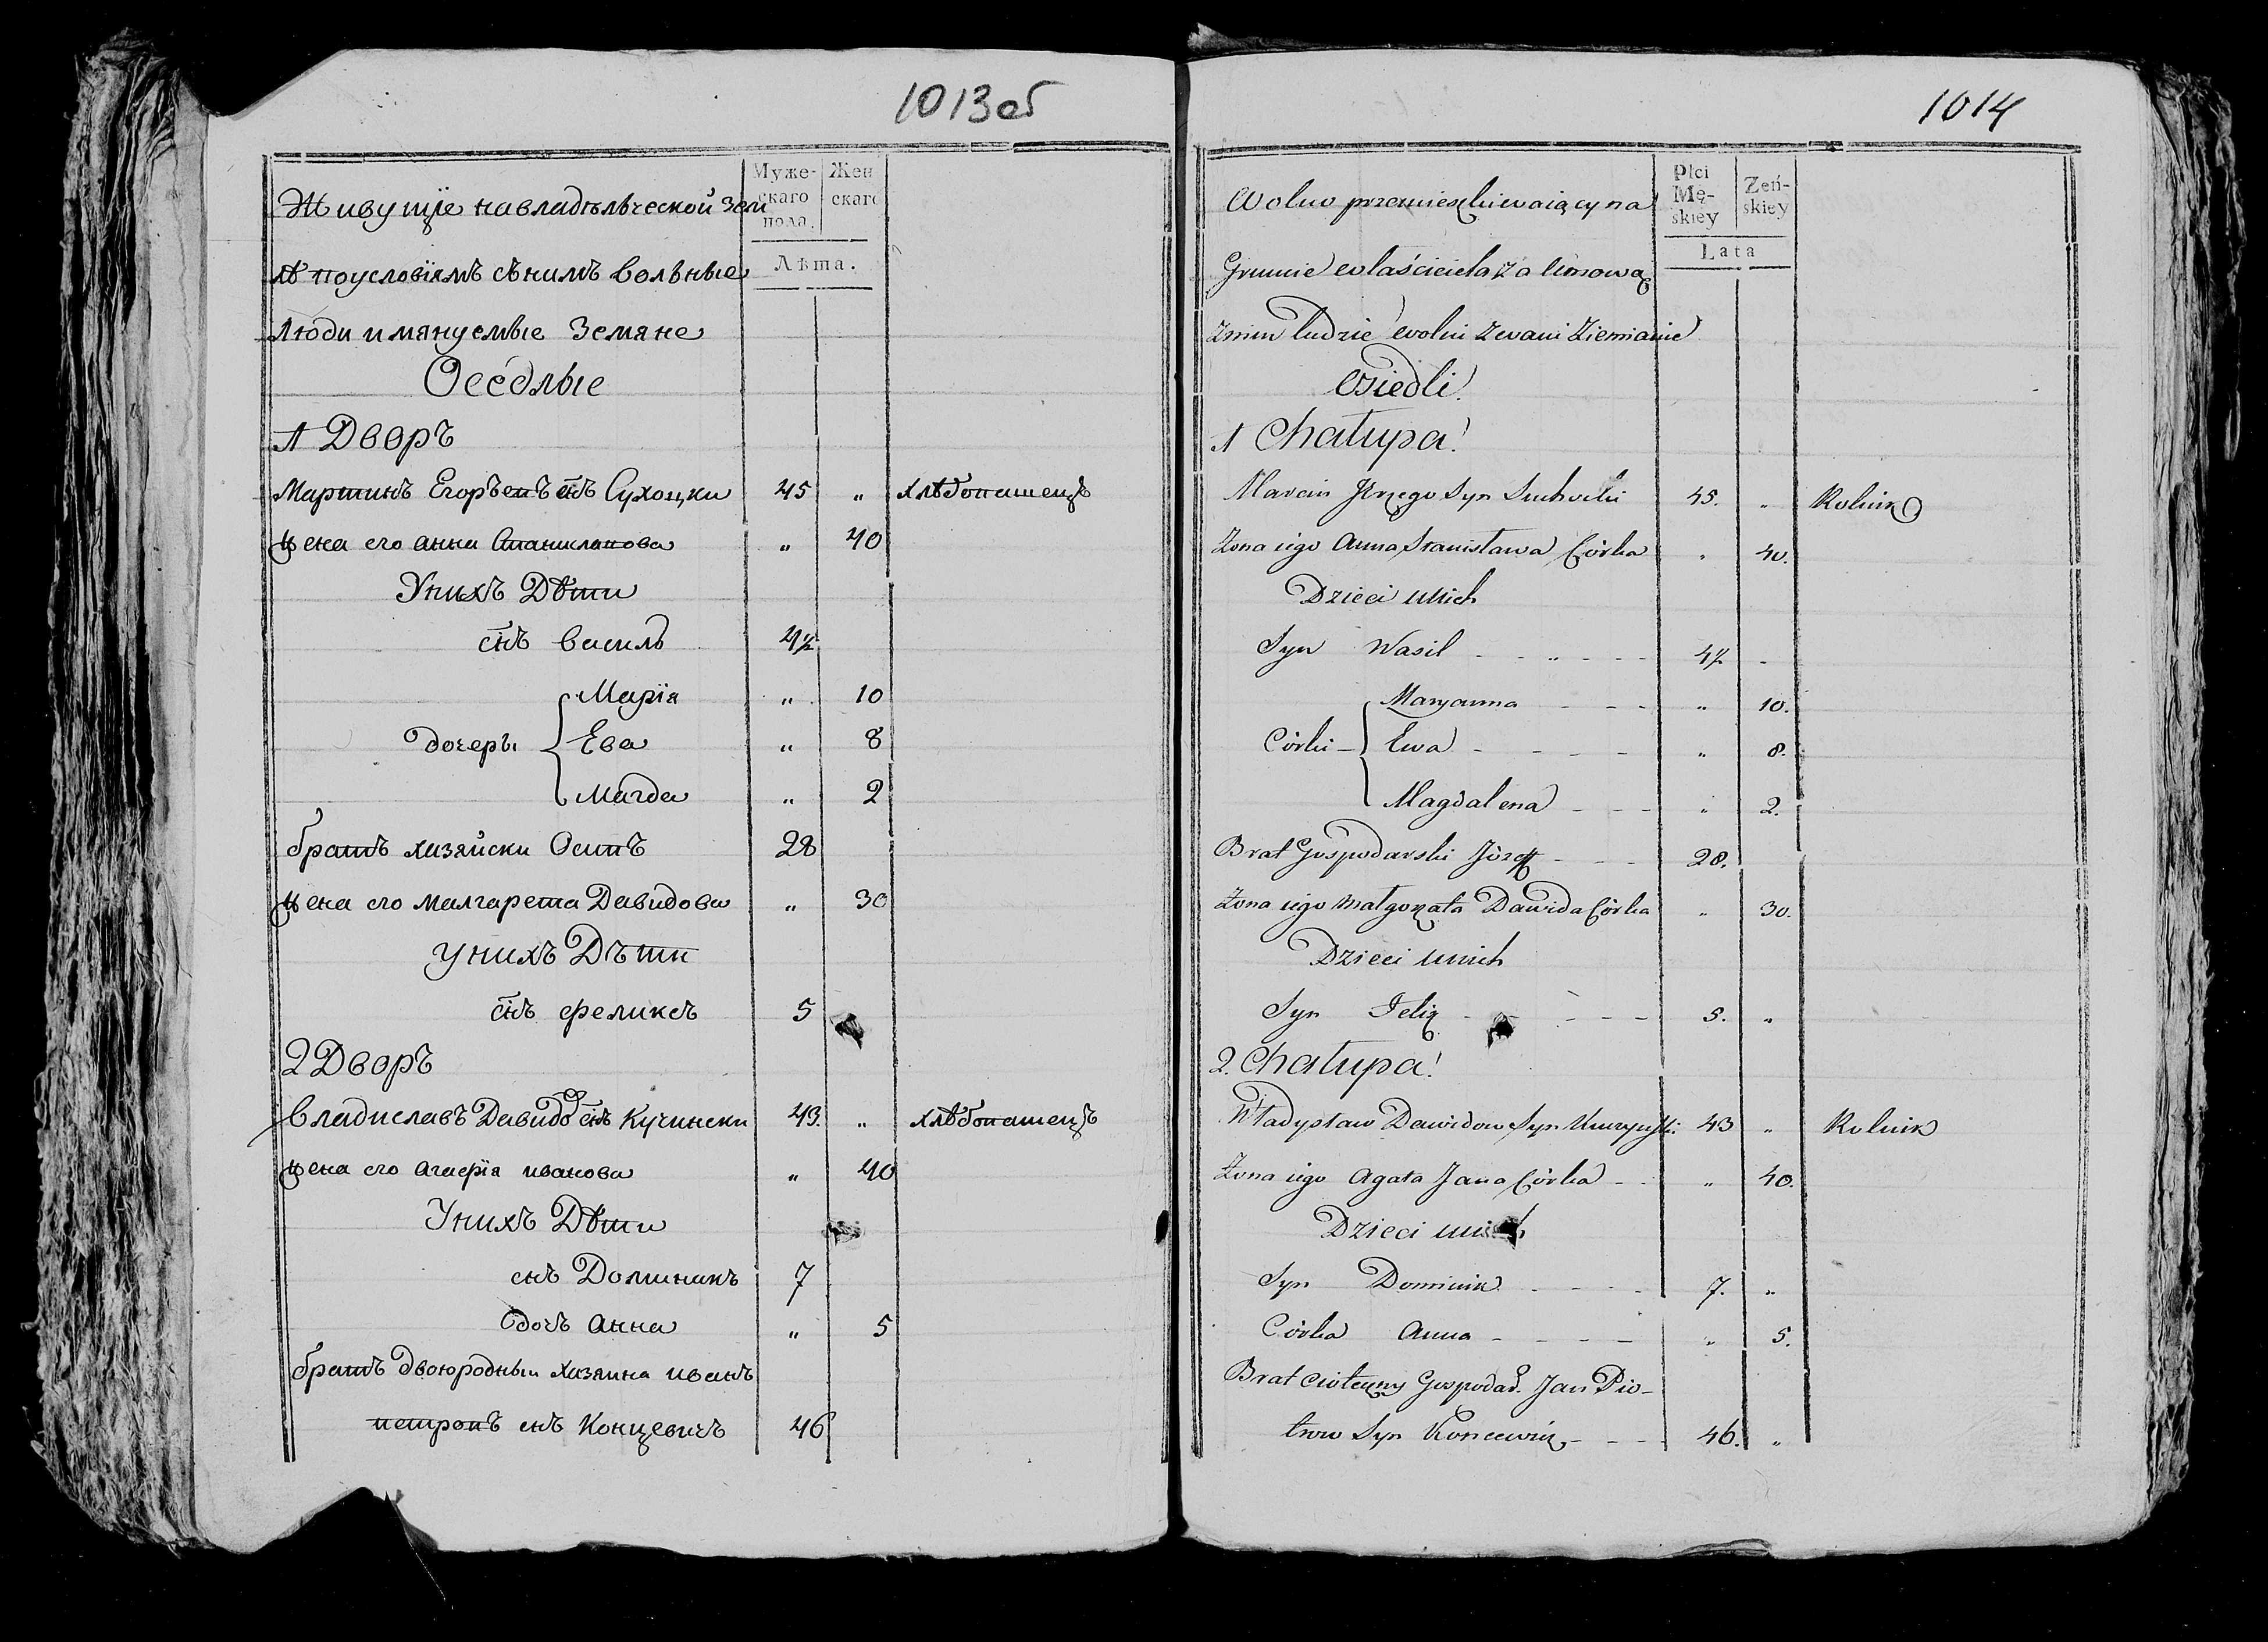 1013 об
Муже-
скаго
пола.
Жен
скаго
Лѣта.
Живущіе на владѣльческой Зем
лѣ по условіямъ съ нимъ вольные
Люди имянуемые Земяне
Осѣдлые
1 Дворъ
Мартинъ Егорьевъ сн҃ъ Сухоцки 45 „ хлѣбопашецъ
Жена его анна Станиславова „ 40
У нихъ Дѣти
сн҃ъ василь 4½
Марія „ 10
дочеры Ева „ 8
Магда „ 2
братъ хазяйски Осипъ 28
Жена его малгарета Давидова „ 30
У нихъ Дѣти
сн҃ъ феликсъ 5
2 Дворъ
Владиславъ Давидо сн҃ъ Кучински 43. „ хлѣбопашецъ
Жена его агаерія иванова „ 40
У нихъ Дѣти
снъ Доминикъ 7
дочъ анна „ 5
братъ двоюродный хазяина иванъ
петровъ снъ Концевичъ 46
1014
Płci
Mę-
skiey
Żeń-
skiey
Lata
Wolno przemieszkiwaiący na
Gruncie własciciela za Umową
z nim ludzie wolni zwani Ziemianie
Osiedli
1 Chałupa
Marcin Jerzego Syn Suchocki 45. „ Rolnik
Żona iego Anna Stanisława Córka „ 40.
Dzieci u nich
Syn Wasil - - „ - - - 4½ „
Maryanna - - - „ 10.
Córki - Ewa - - - - „ 8.
Magdalena - - - „ 2.
Brat Gospodarski Józef - - - 28.
Żona iego Małgorzata Dawida Córka „ 30.
Dzieci u nich
Syn Felix - - - - - 5. „
2. Chałupa
Władysław Dawidow Syn Kuczynski. 43 „ Rolnik
Żona iego Agata Jana Córka - - „ 40.
Dzieci u nich
Syn Dominik - - - - 7. „
Córka Anna - - - - - „ 5.
Brat cioteczny Gospodar. Jan Pio-
trow Syn Koncewicz - - - 46. „